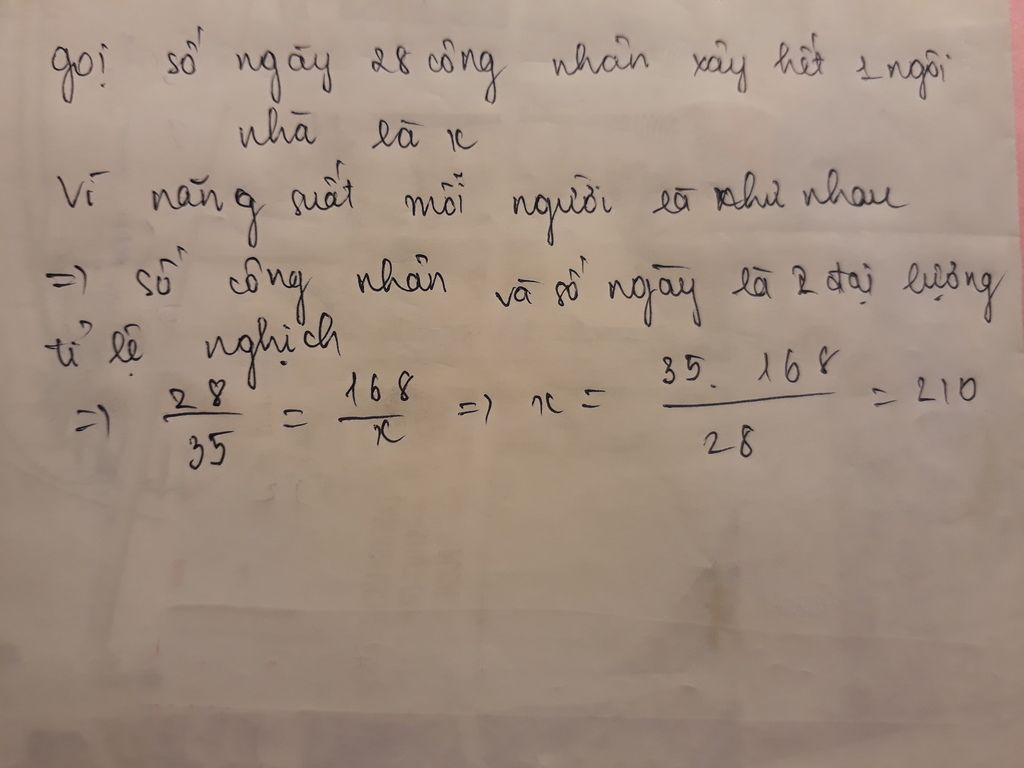 gọi số ngày 28 công nhân xây hết 1 ngôi
nhà là x
Vì năng suất mỗi người là như nhau
=> số công nhân và số ngày là 2 đại lượng
tỉ lệ nghịch
=> 28/35 = 168/x => x = 35. 168/28 = 210